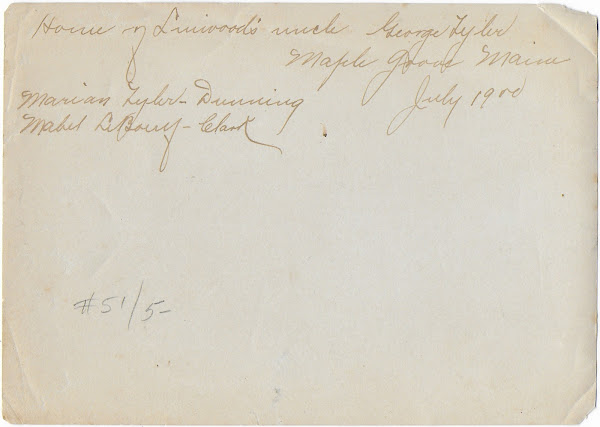 Home of Linwood's uncle George Tyler
Maple Grove Maine
July 1900
Marian Tyler - Dunning
Mabel - Clark
#51/5-